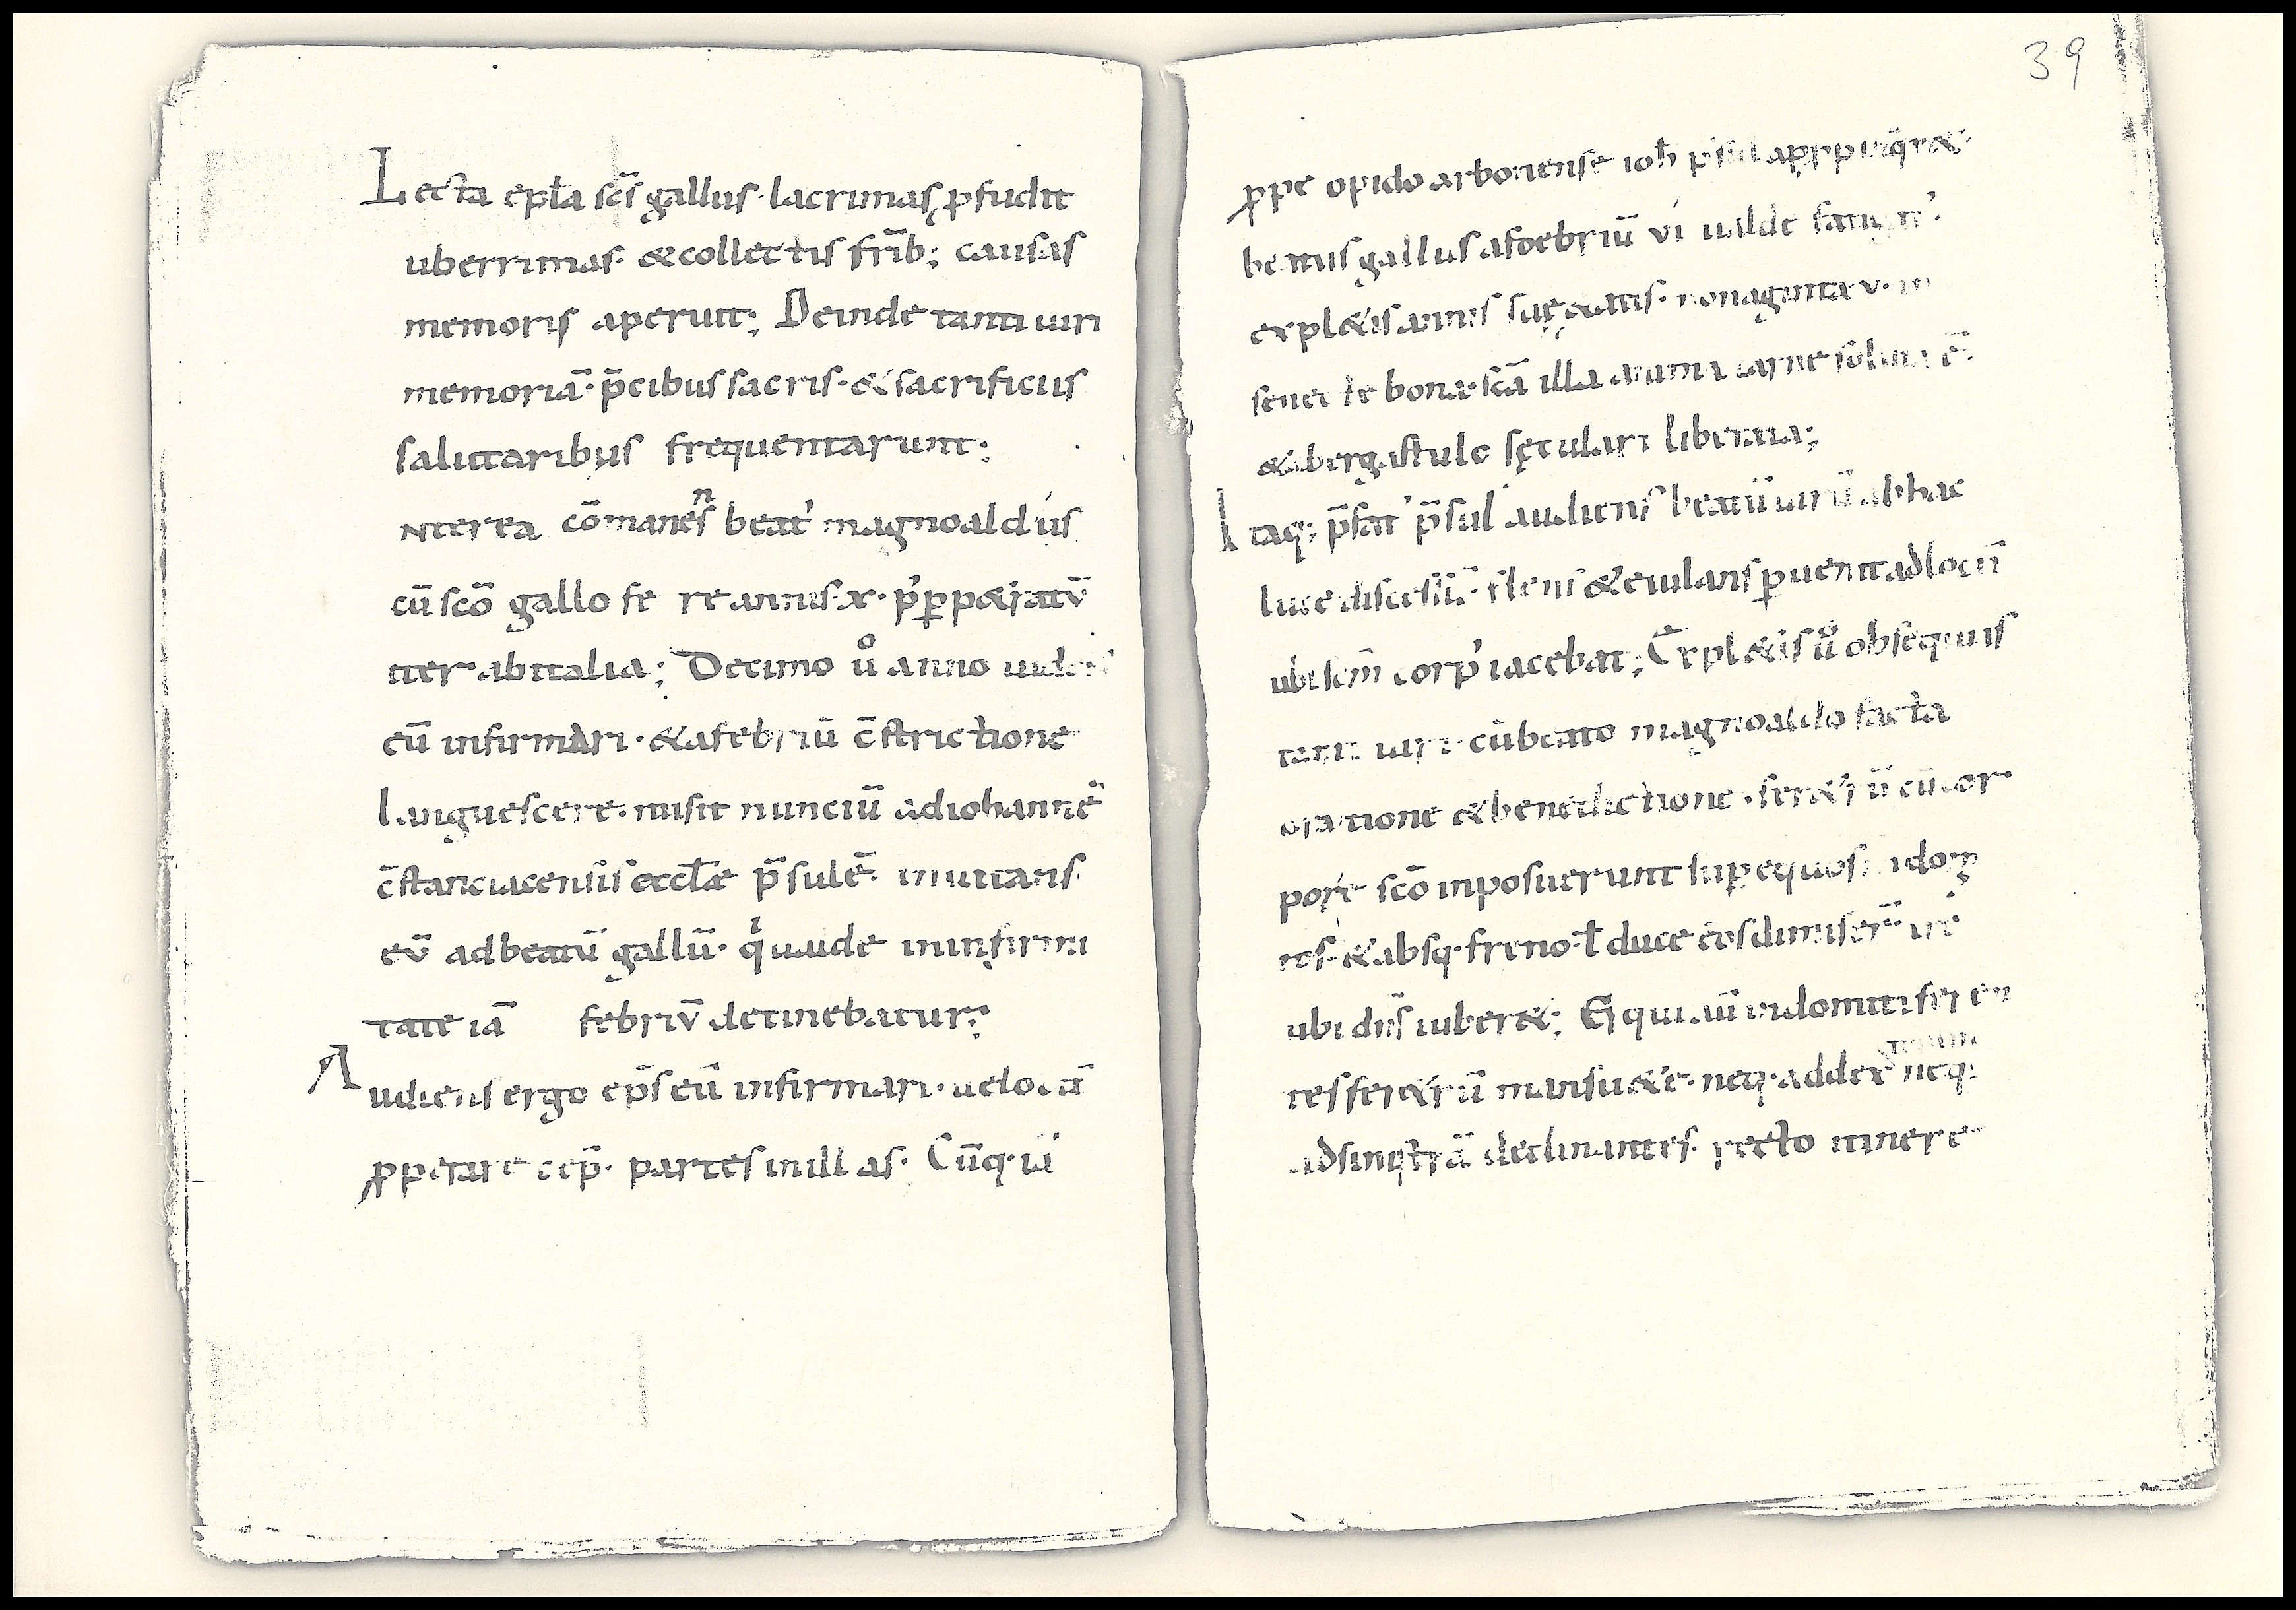 Lecta epła scs̄ gallus· lacrimas ꝓfudit
uberrimas· &collectis frīb; causas
memoris aperuit; Deinde tanti uiri
memoriā· p̄cibus sacris· & sacrificiis
salutaribus frequentarunt;
Nterea cōmanens beat' magnoaldus
cū scō gallo fere annis· x· p' ꝑp&ratū
iter ab italia; Decimo ů anno uidens
eū infirmari· & a febriū c̄strictione
languescere· misit nunciū ad iohannē
c̄stanciacensis eccłae p̄sulē· inuitans
eū ad beatū gallū· q' ualde in infirmi
tate iā febriū detinebatur;
Audiens ergo ep̄s eū infirmari· uelocit̄
ꝓperare cep̄· partes in illas· Cūq· iā
39
ꝓpe opido arbonense ioħ p̄sul apꝓpinq̄r&·
beatus gallus a foebriū vi ualde fatigat'·
expl&is annis suę &atis· nonaginta v· in
senectute bona· scā illa anima carne soluta ē·
& ab ergastulo sęculari liberata;
Itaq; p̄fat' p̄sul audiens beatū uirū ab hac
luce discessū· flens & eiulans ꝑuenit ad locū
ubi scm̄ corp' iacebat; Expl&is ů obsequiis
tanti uiri· cū beato magnoaldo facta
oratione & benedictione· fer&rū cū cor
pore scō inposuerunt suꝑ equos indomi
tos· & absq· freno· ł duce eos dimiser̄
ubi dn̄s iuber&; Equi aū indomiti feren
tes fer&rū mansu&e· neq· ad dexteram neq·
ad sinistrā declinantes· recto itinere